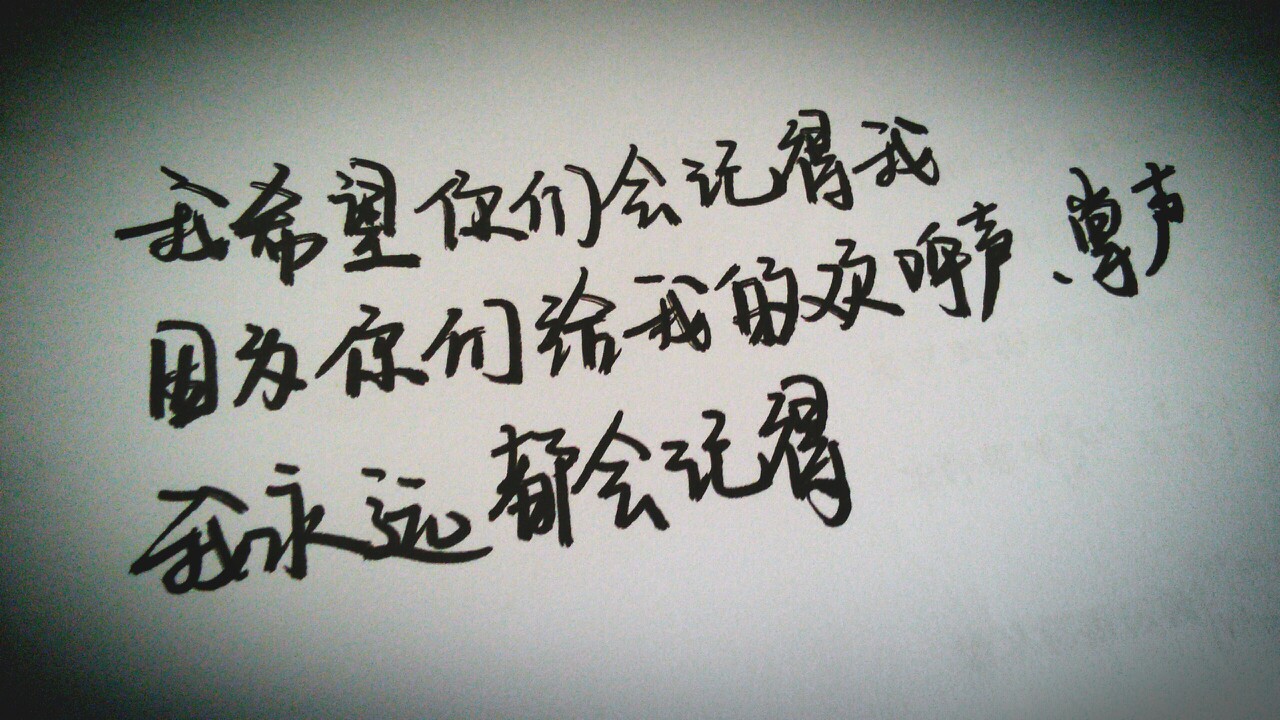 我希望你们会记得我
因为你们给我的欢呼声、掌声
我永远都会记得